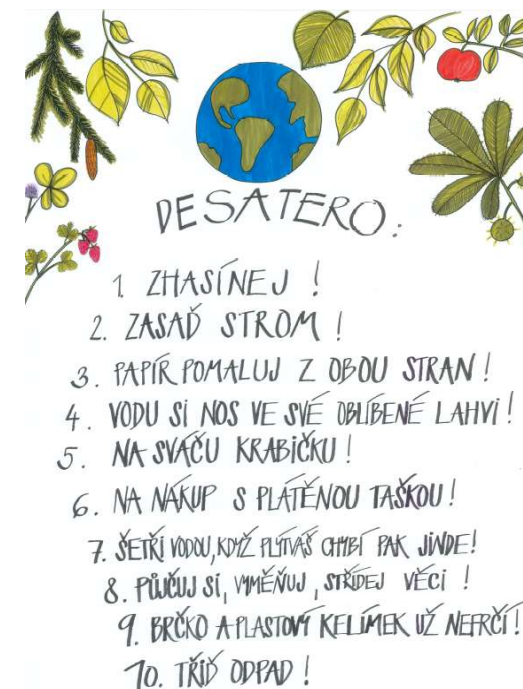 DESATERO:
1. ZHASÍNEJ !
2. ZASAĎ STROM !
3. PAPÍR POMALUJ Z OBOU STRAN !
4. VODU SI NOS VE SVÉ OBLÍBENÉ LAHVI !
5. NA SVAČU KRABIČKU !
6. NA NÁKUP S PLÁTĚNOU TAŠKOU !
7. ŠETŘI VODOU, KDYŽ PLÝTVÁŠ CHYBÍ PAK JINDE!
8. PŮJČUJ SI, VYMĚŇUJ, STŘÍDEJ VĚCI !
9. BRČKO A PLASTOVÝ KELÍMEK UŽ NEFRČÍ !
10. TŘIĎ ODPAD !